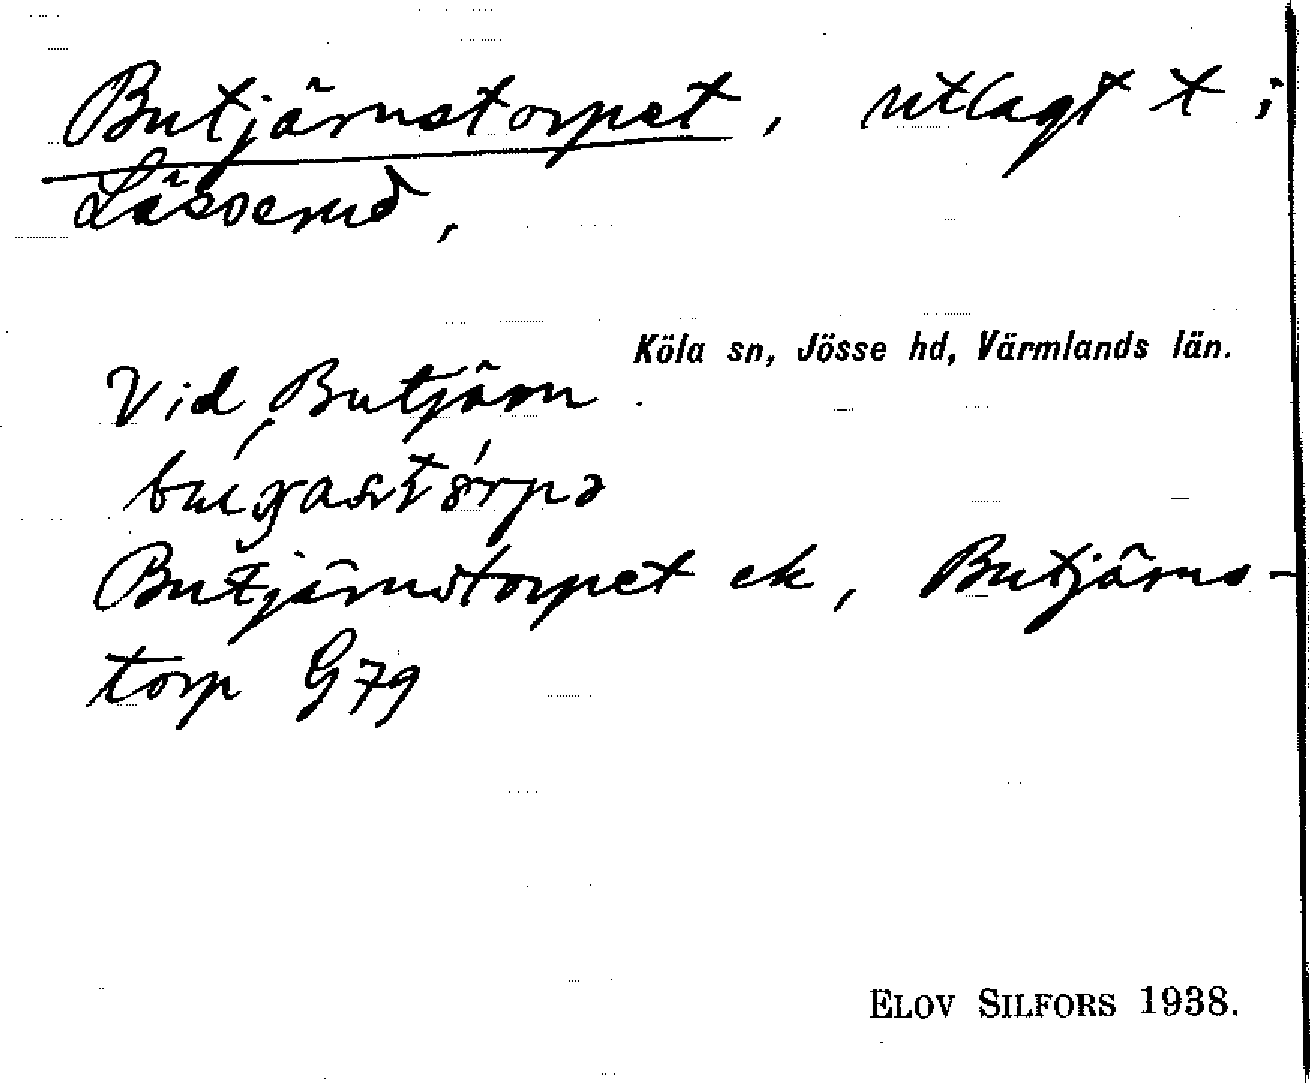 Butjärnstorpet, utlagt t i
Läsoerud,
Köla sn, Jösse hd, Värmlands län.
Vid Butjärn.
Butjärnstorpet ek, Butjärns-
torp G79
ELOV SILFORS 1938.